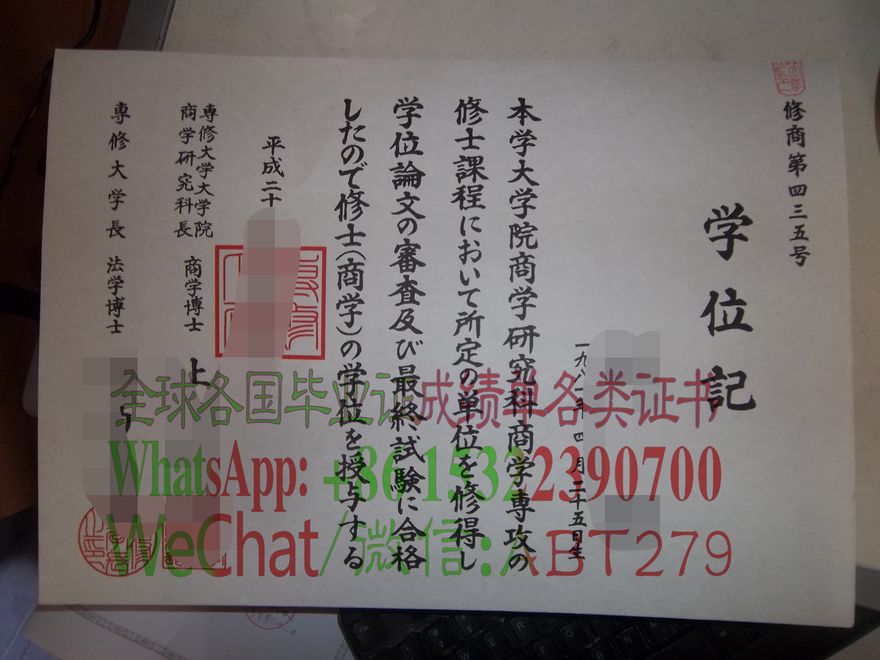 修商第四三五号
学位記
一九八一年 四 月 二十五日生
本学大学院商学研究科商学専攻の
修士課程において所定の単位を修得し
学位論文の審査及び最終試験に合格
したので修士(商学)の学位を授与する
平成二十
専修大学大学院
商学研究科長 商学博士 上
専修大学長 法学博士
全球各国毕业证成绩单各类证书
WhatsApp: +86 15322390700
WeChat/微信:ABT279